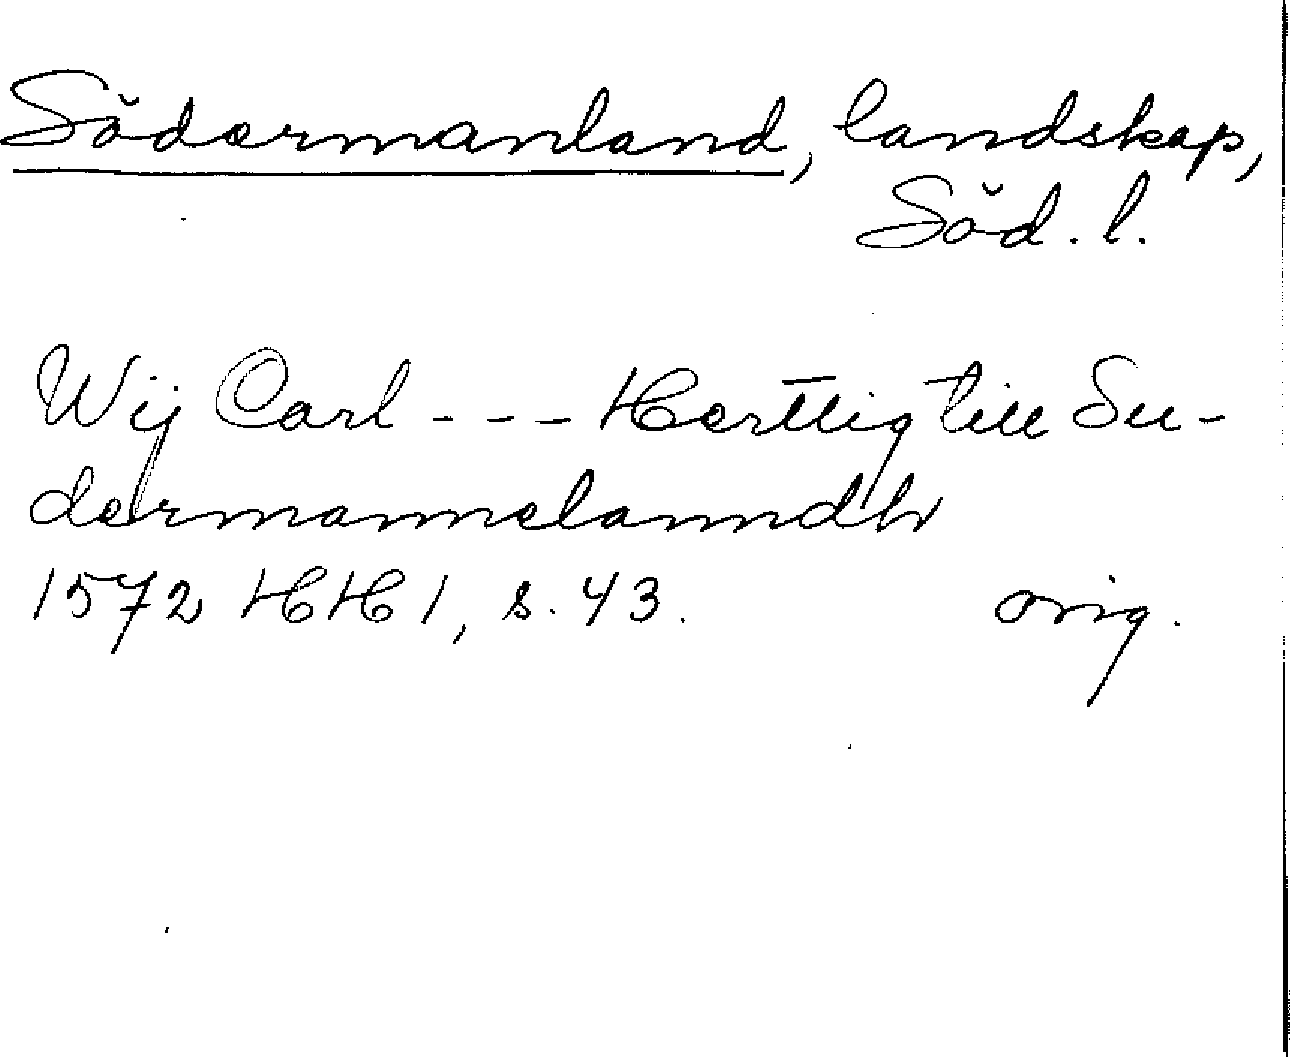 Södermanland, landskap,
Söd. l.
Wij Carl - - - Herttig till Su-
dermannelanndh
1572 HH 1, s. 43. orig.